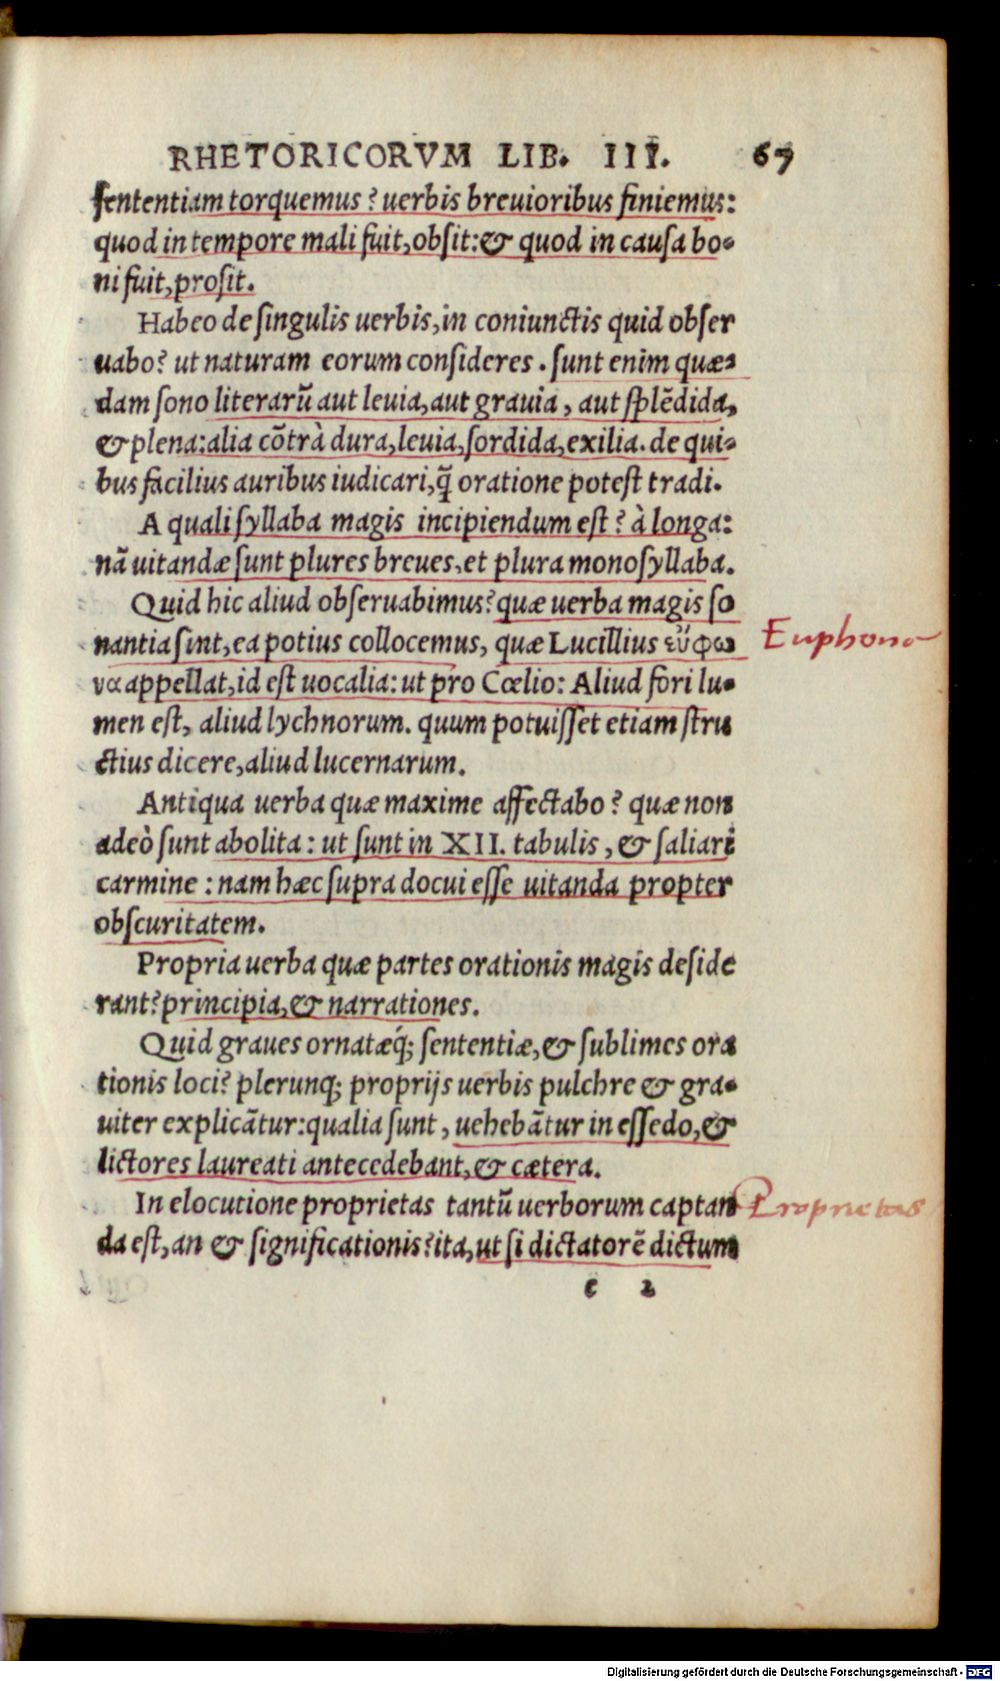 RHETORICORVM LIB. III. 67
sententiam torquemus? uerbis breuioribus finiemus:
quod in tempore mali fuit, obsit: & quod in causa bo-
ni fuit, prosit.
Habeo de singulis uerbis, in coniunctis quid obser
uabo? ut naturam eorum consideres. sunt enim quæ-
dam sono literarũ aut leuia, aut grauia, aut splẽdida,
& plena: alia cõtrà dura, leuia, sordida, exilia. de qui-
bus facilius auribus iudicari, q̃ oratione potest tradi.
A quali syllaba magis incipiendum est? à longa:
nã uitandæ sunt plures breues, et plura monosyllaba.
Quid hic aliud obseruabimus? quæ uerba magis so
nantia sint, ea potius collocemus, quæ Lucillius εὔφω
Euphona
να appellat, id est uocalia: ut pro Cœlio: Aliud fori lu-
men est, aliud lychnorum. quum potuisset etiam stru
ctius dicere, aliud lucernarum.
Antiqua uerba quæ maxime affectabo? quæ non
adeò sunt abolita: ut sunt in XII. tabulis, & saliari
carmine: nam hæc supra docui esse uitanda propter
obscuritatem.
Propria uerba quæ partes orationis magis deside
rant? principia, & narrationes.
Quid graues ornatæq́; sententiæ, & sublimes ora
tionis loci? plerunq; proprijs uerbis pulchre & gra-
uiter explicãtur: qualia sunt, uehebãtur in essedo, &
lictores laureati antecedebant, & cætera.
In elocutione proprietas tantũ uerborum captan
Proprietas
da est, an & significationis? ita, ut si dictatorẽ dictum
c 2
Digitalisierung gefördert durch die Deutsche Forschungsgemeinschaft - DFG